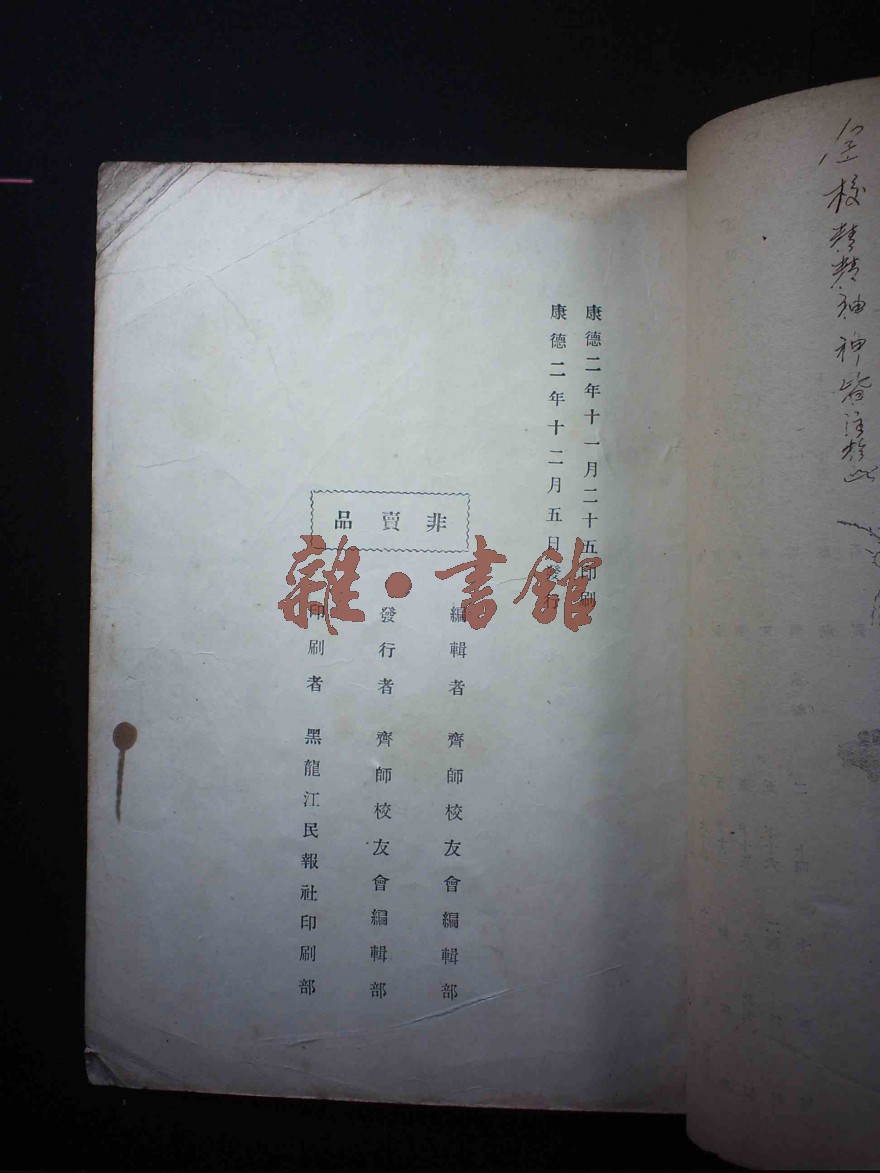 全校精精神神皆注於此
康德二年十一月二十五印刷
康德二年十二月五日發行
非賣品
編輯者　齊師校友會編輯部
發行者　齊師校友會編輯部
印刷者　黑龍江民報社印刷部
雜·書館